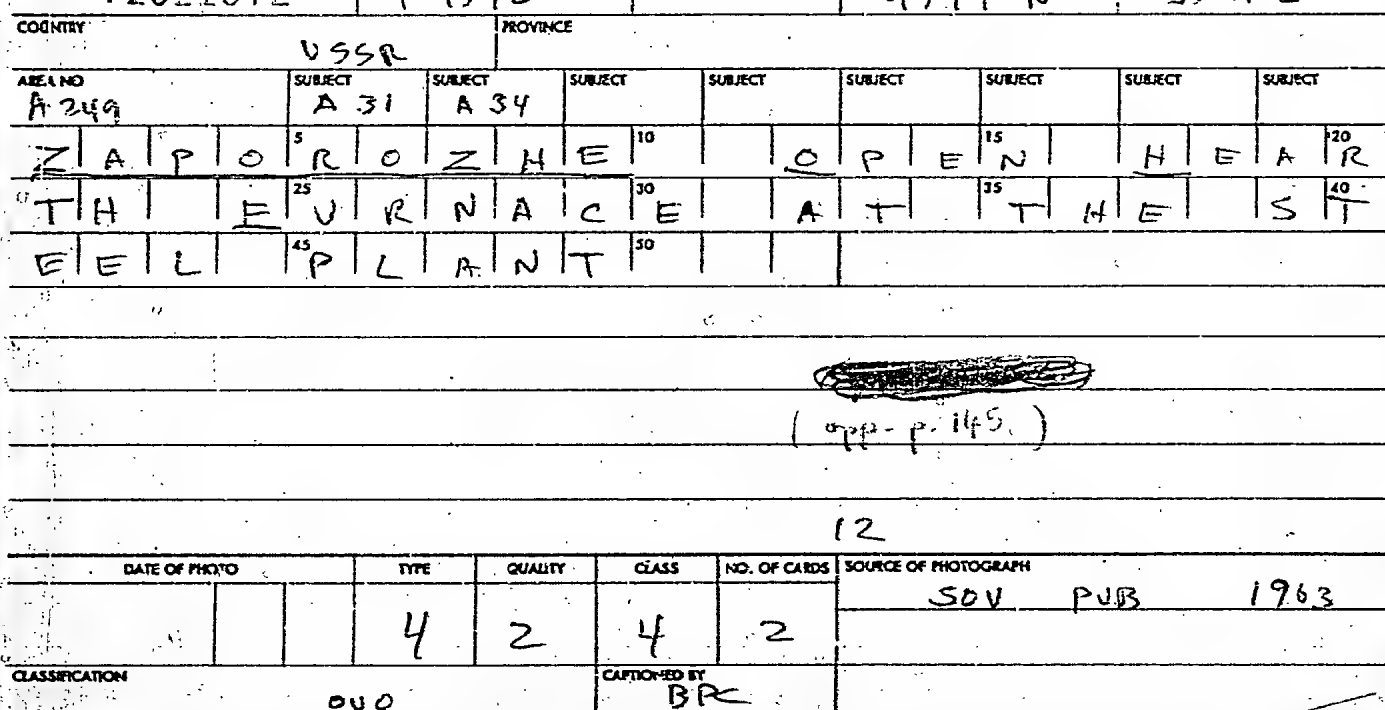 COUNTRY USSR PROVINCE
AREA NO A 249 SUBJECT A 31 SUBJECT A 34 SUBJECT SUBJECT SUBJECT SUBJECT SUBJECT SUBJECT
ZAPO 5 ROZHE 10 OPE 15 N HEA 20 R
TH F 25 URNAC 30 E AT 35 THE S 40 T
EEL 45 PLANT 50
(opp. p. 145.)
12
DATE OF PHOTO TYPE 4 QUALITY 2 CLASS 4 NO. OF CARDS 2 SOURCE OF PHOTOGRAPH SOV PUB 1963
CLASSIFICATION OUO CAPTIONED BY BPC